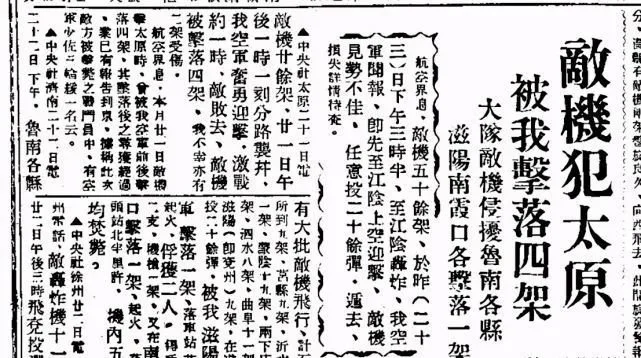 敵機犯太原
被我擊落四架
大隊敵機侵擾魯南各縣
滋陽南霞口各擊落一架
航空界息、敵機五十餘架、於昨(二十
三)日下午三時半、至江陰轟炸、我空
軍聞報、卽先至江陰上空迎擊、敵機
見勢不佳、任意投二十餘彈、遁去、
損失詳情待查。
▲中央社太原二十一電
敵機廿餘架、廿一日午
後一時一刻分路襲幷、
我空軍奮勇迎擊、激戰
約一時、敵敗去、敵機
被擊落四架、我不幸亦有
二架受傷。
航空界息、本月廿一日敵機襲
擊太原時、曾被我空軍前後擊
落四架、其墜落後之尋獲經過
、業已有報告到京、據稱此次
敵方被擊斃之戰鬥員中、有空
軍少佐三輪一名云。
▲中央社濟南二十二日電
二十二日下午、魯南各縣
有大批敵機飛行、計
所到九架、莒縣九架、沂水
一架、蒙陰十九架、兩下店
架、泗水八架、曲阜十一架
滋陽(卽兗州)九架、在滋
投二十餘彈、被我滋陽
軍擊落一架、落車站
起火、俘獲二人
二支、機槍一架、又在南
口擊落一架、起火、落
頭站北半里許、機內五
均焚斃。
▲中央社徐州廿二日電
州電話、敵轟炸機十一
廿二日午後三時飛兗投彈